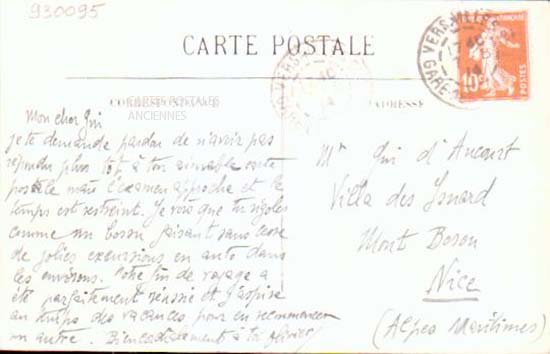 930095
CARTE POSTALE
VERSAILLES
GARE
10c
POSTES
CARTES POSTALES
ANCIENNES
CORRESPONDANCE
ADRESSE
Mon cher Gui
je te demande pardon de n'avoir pas
répondu plus tôt à ton aimable carte
postale mais l'examen approche et le
temps est restreint. Je vois que tu rigoles
comme un bossu faisant sans cesse
de jolies excursions en auto dans
les environs. Notre fin de voyage a
été parfaitement réussie et j'aspire
au temps des vacances pour en recommencer
un autre. Bien cordialement à toi
Mr Gui d'Ancourt
Villa des Isnard
Mont Boron
Nice
(Alpes Maritimes)